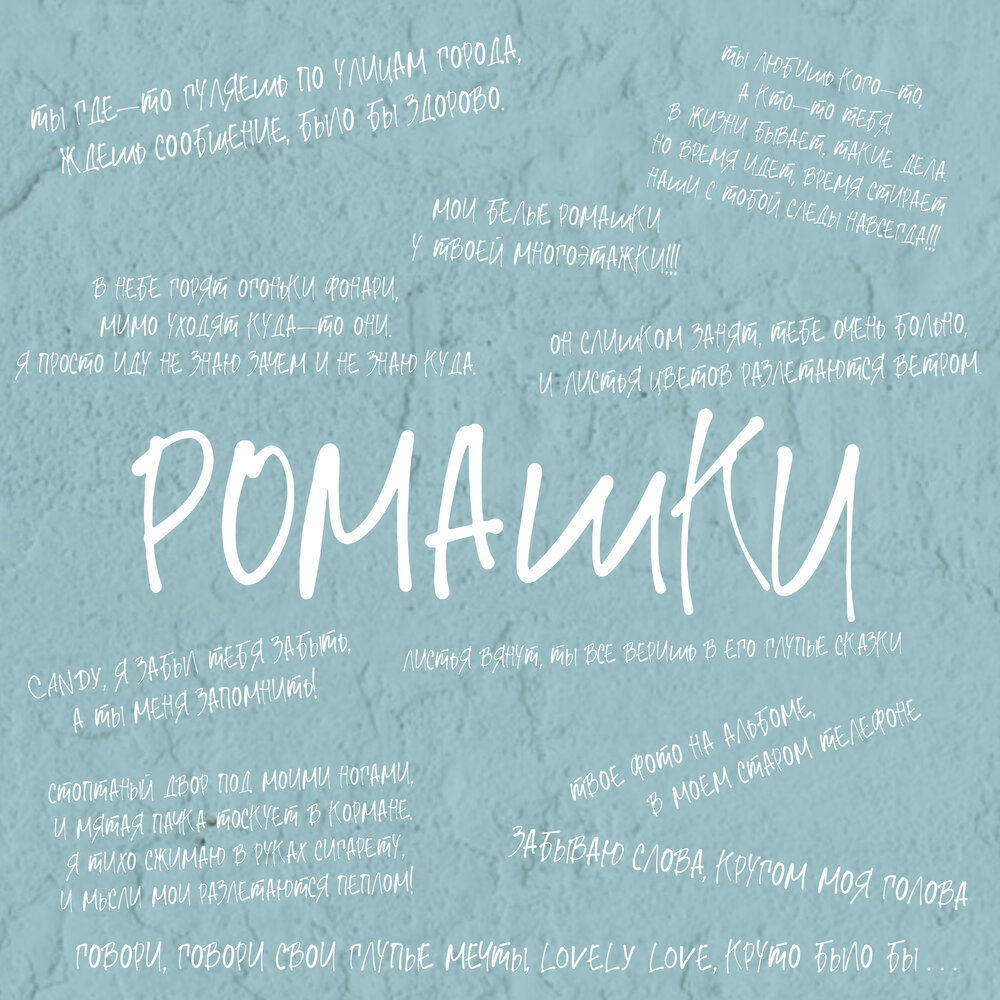 ты где—то гуляешь по улицам города,
ждешь сообщение, было бы здорово.
ты любишь кого—то,
а кто—то тебя.
в жизни бывает, такие дела.
но время идет, время стирает
наши с тобой следы навсегда!!!
мои белые ромашки
у твоей многоэтажки!!!
в небе горят огоньки фонари,
мимо уходят куда—то они.
я просто иду не знаю зачем и не знаю куда.
он слишком занят, тебе очень больно,
и листья цветов разлетаются ветром.
РОМАШКИ
candy, я забыл тебя забыть,
а ты меня запомнить!
листья вянут, ты все веришь в его глупые сказки
твое фото на альбоме,
в моем старом телефоне
стоптаный двор под моими ногами,
и мятая пачка тоскует в кормане.
я тихо сжимаю в руках сигарету,
и мысли мои разлетаются пеплом!
забываю слова, кругом моя голова
говори, говори свои глупые мечты, lovely love, круто было бы ...